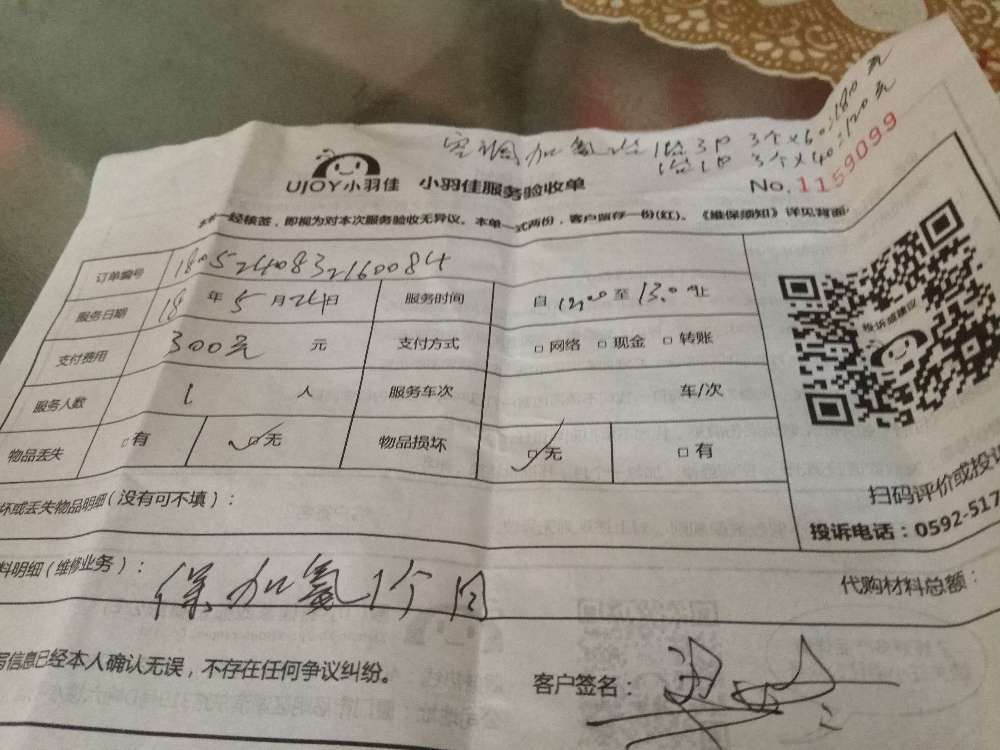 空调加氟2台 1台3P 3个×60=180元
1台1P 3个×40=120元
UJOY小羽佳 小羽佳服务验收单
No. 1159099
一经核签，即视为对本次服务验收无异议。本单一式两份，客户留存一份(红)。《维保须知》详见背面
订单编号 1805240832160084
服务日期 18年5月24日 服务时间 自12:00至13:00止
支付费用 300元 元 支付方式 □网络 □现金 □转账
服务人数 1 人 服务车次 车/次
物品丢失 □有 ☑无 物品损坏 ☑无 □有
投诉或建议
扫码评价或投诉
投诉电话：0592-517
坏或丢失物品明细(没有可不填)：
料明细(维修业务)： 保加氟1个月
代购材料总额：
写信息已经本人确认无误，不存在任何争议纠纷。
客户签名：